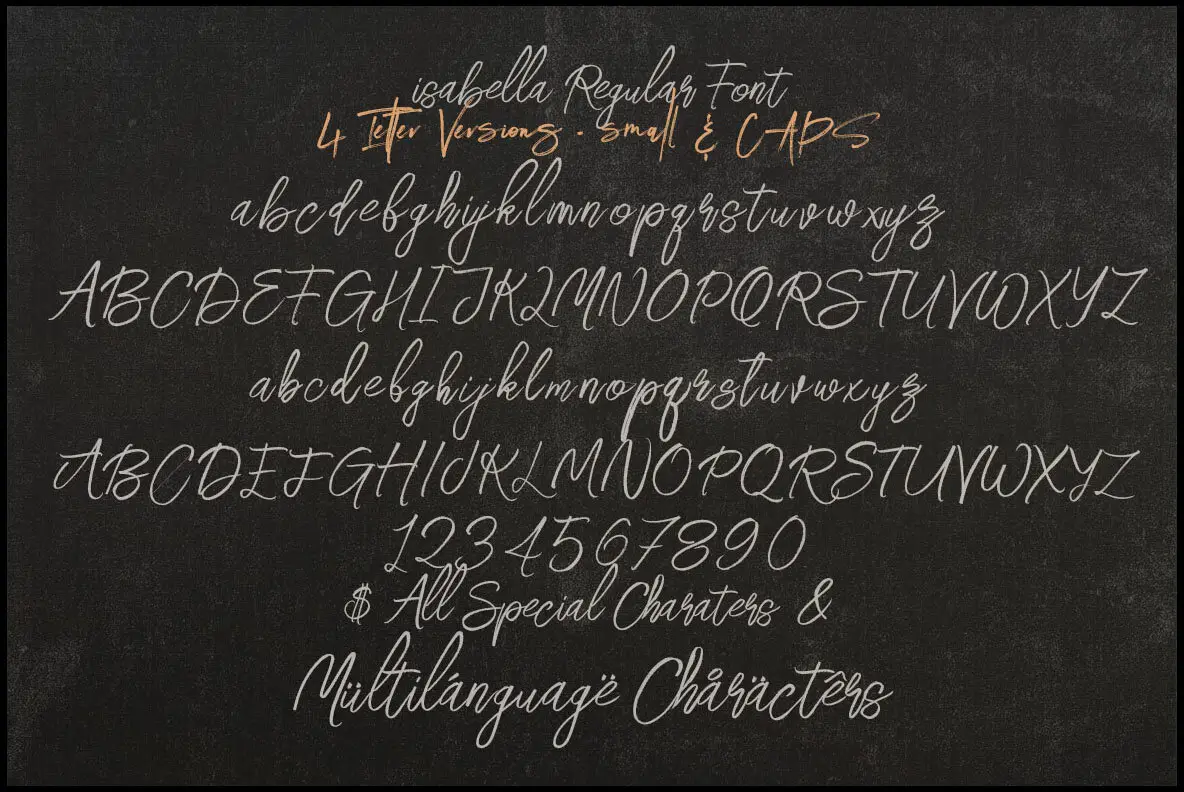 isabella Regular Font
4 letter Versions - small & CAPS
abcdefghijklmnopqrstuvwxyz
ABCDEFGHIJKLMNOPQRSTUVWXYZ
abcdefghijklmnopqrstuvwxyz
ABCDEFGHIJKLMNOPQRSTUVWXYZ
1234567890
$ All Special Charaters &
Mültilánguagë Chåräctêrs